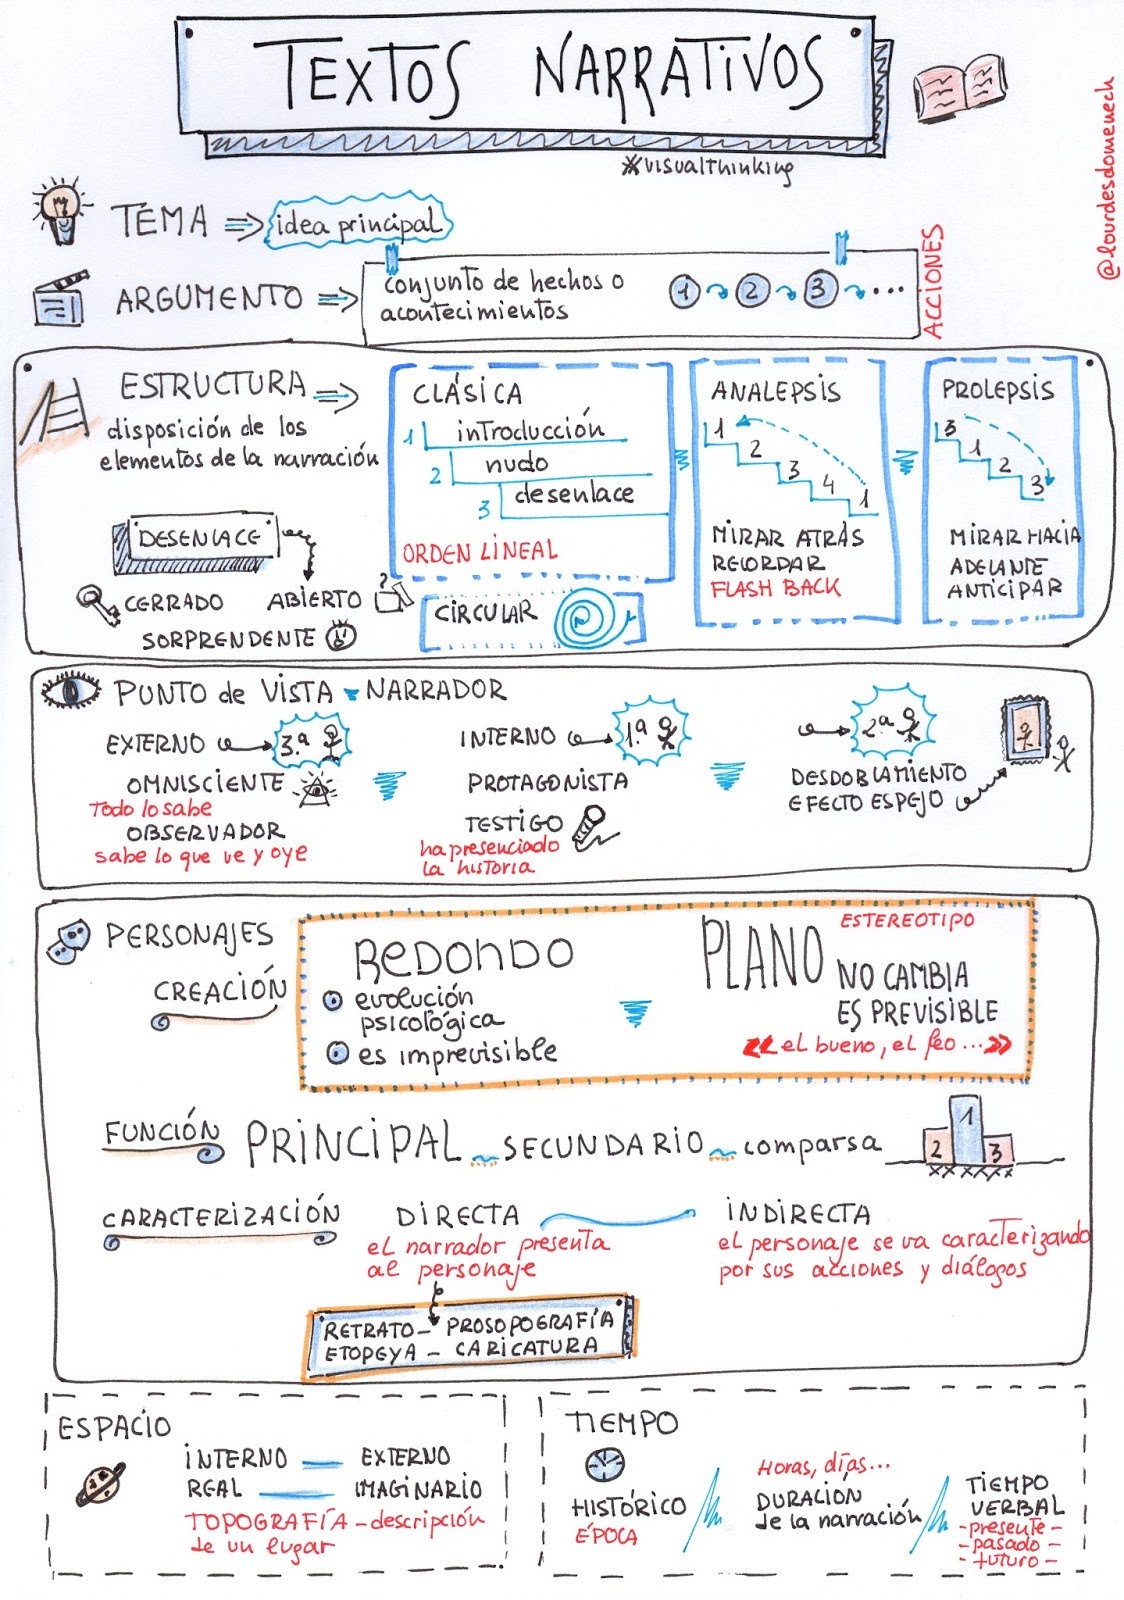 TEXTOS NARRATIVOS
#visualthinking
@lourdesdomenech
TEMA ⇒ idea principal
ARGUMENTO ⇒ conjunto de hechos o
acontecimientos
1 2 3 ...
ACCIONES
ESTRUCTURA ⇒
disposición de los
elementos de la narración
DESENLACE
CERRADO
ABIERTO
SORPRENDENTE
CLÁSICA
1 introducción
2 nudo
3 desenlace
ORDEN LINEAL
CIRCULAR
ANALEPSIS
1
2
3
4
1
MIRAR ATRÁS
RECORDAR
FLASH BACK
PROLEPSIS
3
1
2
3
MIRAR HACIA
ADELANTE
ANTICIPAR
PUNTO de VISTA NARRADOR
EXTERNO 3.ª
OMNISCIENTE
Todo lo sabe
OBSERVADOR
sabe lo que ve y oye
INTERNO 1.ª
PROTAGONISTA
TESTIGO
ha presenciado
la historia
2ª
DESDOBLAMIENTO
EFECTO ESPEJO
PERSONAJES
CREACIÓN
REDONDO
evolución
psicológica
es imprevisible
PLANO
ESTEREOTIPO
NO CAMBIA
ES PREVISIBLE
«el bueno, el feo...»
FUNCIÓN PRINCIPAL SECUNDARIO comparsa
2 1 3
CARACTERIZACIÓN
DIRECTA
el narrador presenta
al personaje
INDIRECTA
el personaje se va caracterizando
por sus acciones y diálogos
RETRATO – PROSOPOGRAFÍA
ETOPEYA – CARICATURA
ESPACIO
INTERNO — EXTERNO
REAL — IMAGINARIO
TOPOGRAFÍA – descripción
de un lugar
TIEMPO
HISTÓRICO
ÉPOCA
Horas, días...
DURACIÓN
de la narración
TIEMPO
VERBAL
- presente -
- pasado -
- futuro -